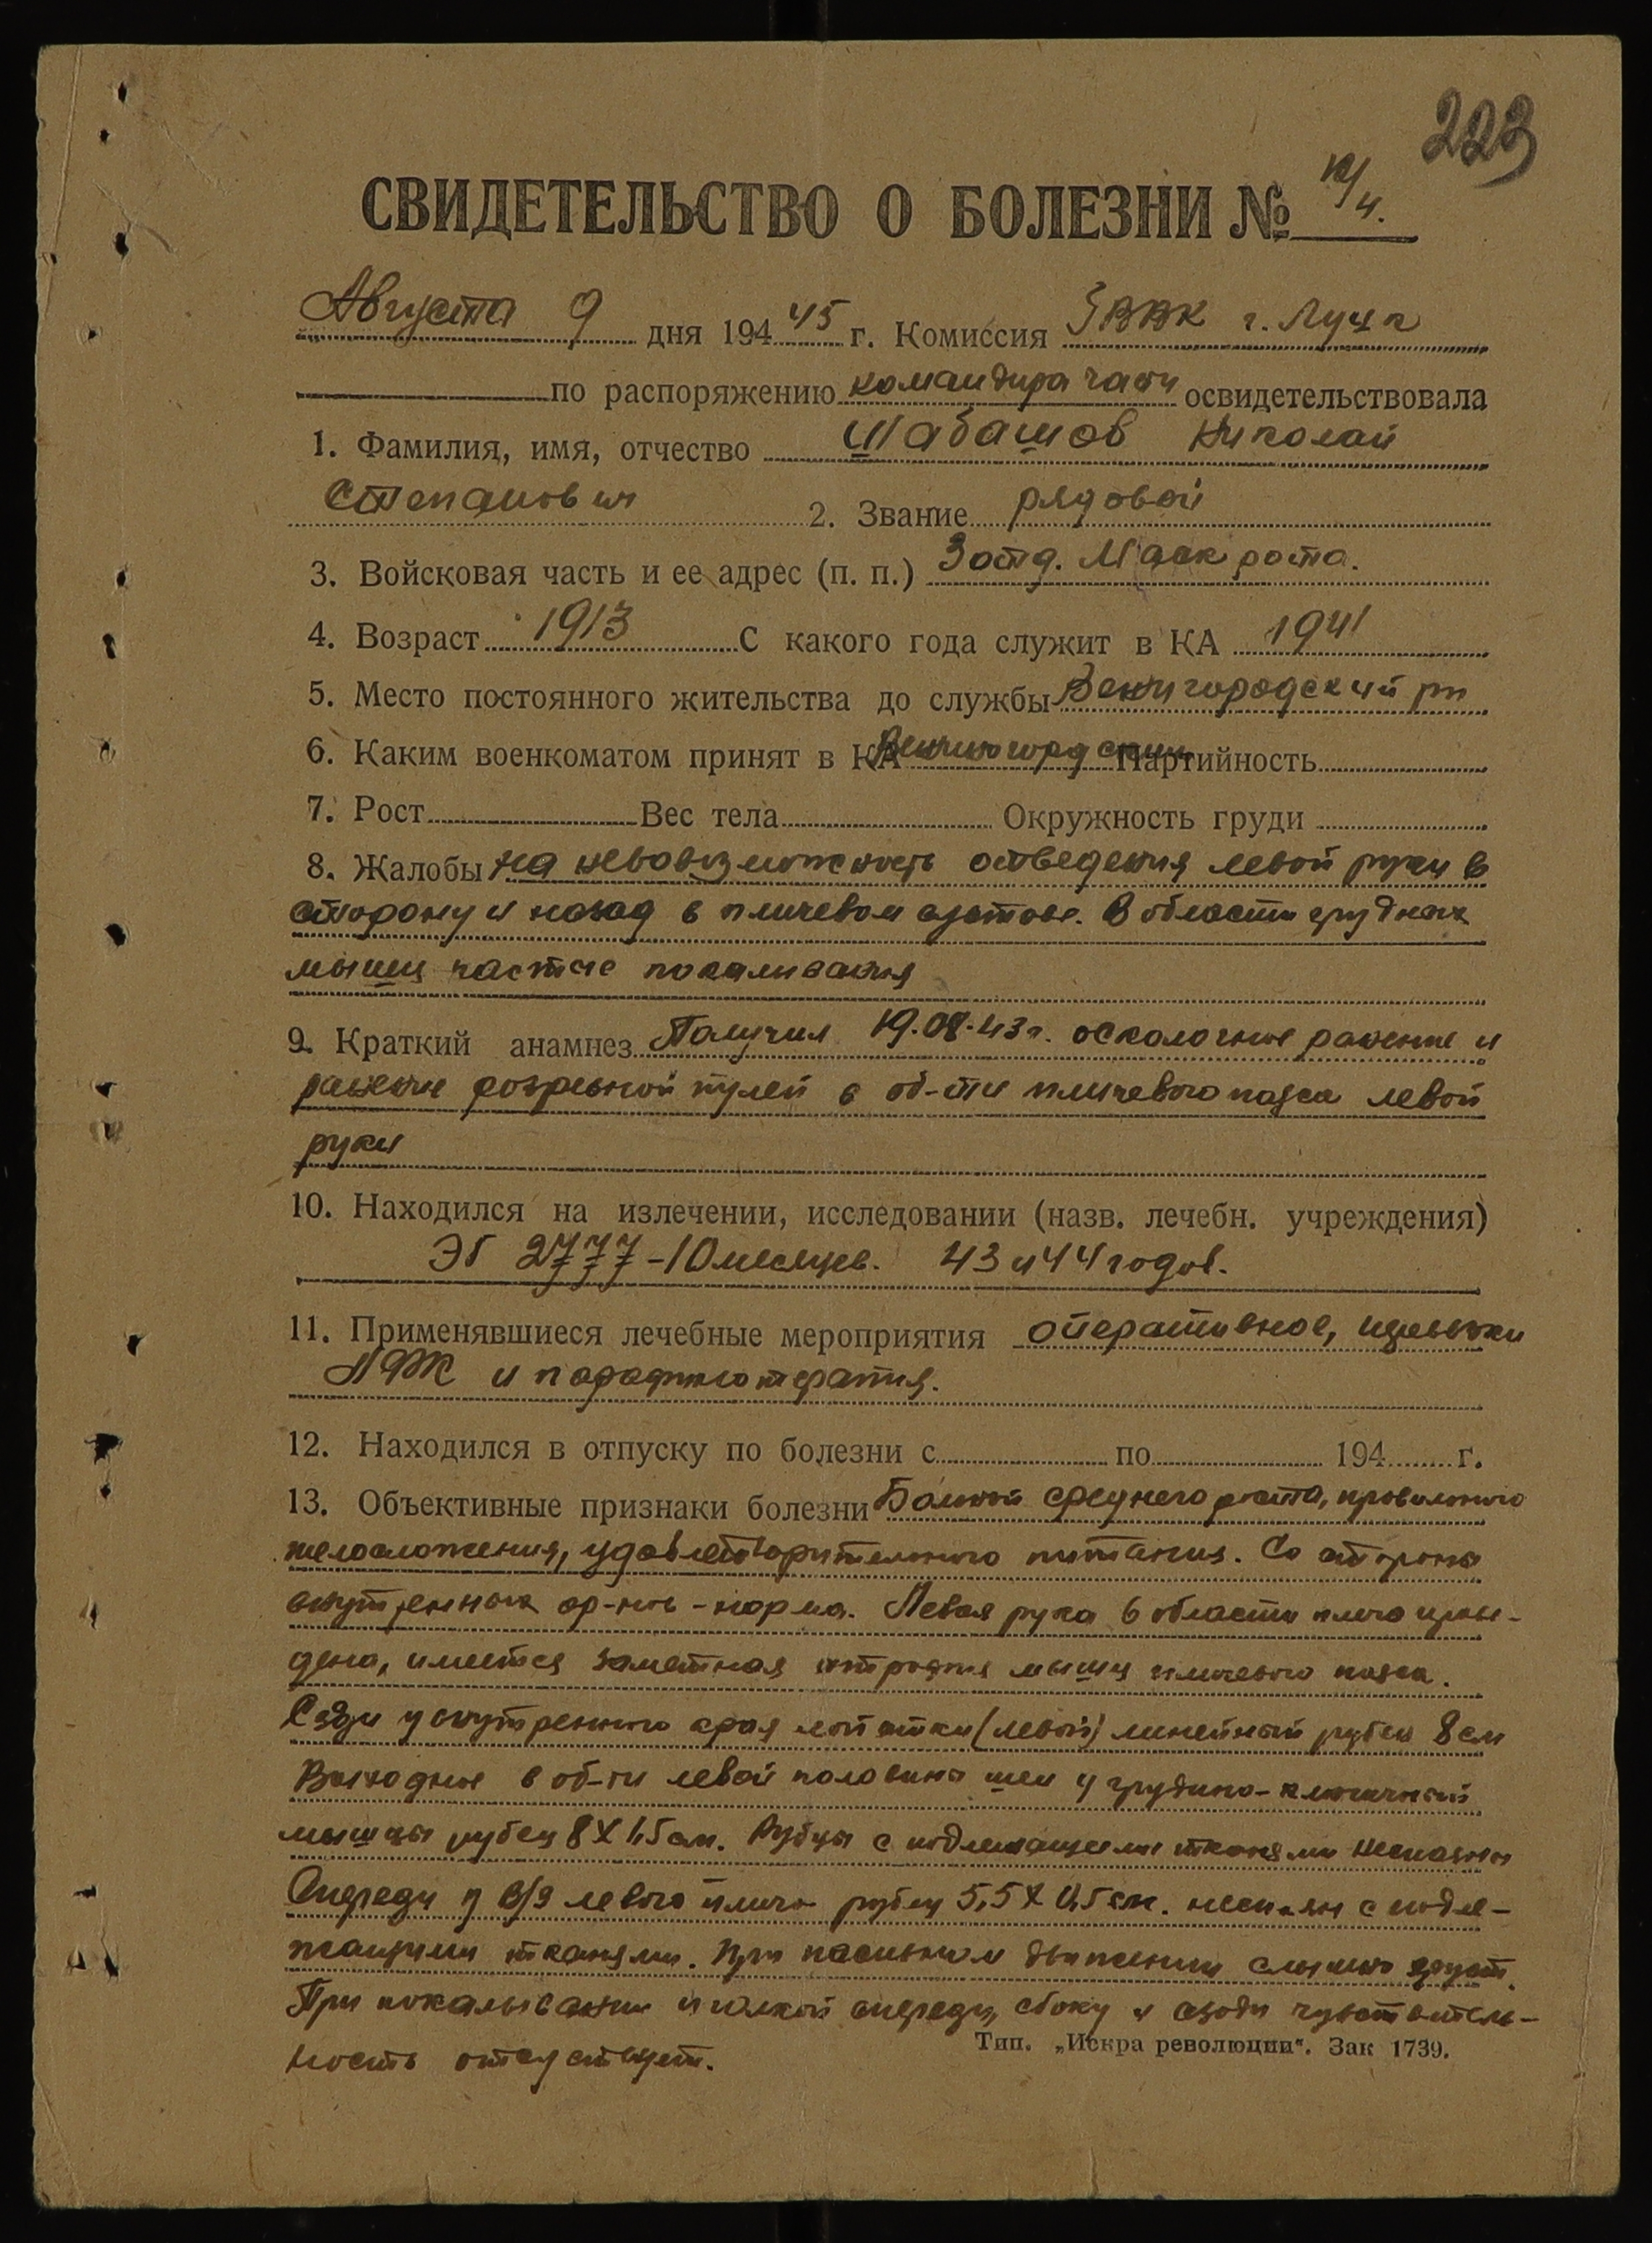 223
СВИДЕТЕЛЬСТВО О БОЛЕЗНИ №
Августа 9 дня 194 45 г. Комиссия ГВВК г. Луцк
по распоряжению командира части освидетельствовала
1. Фамилия, имя, отчество Шабашов Николай
Степанович 2. Звание рядовой
3. Войсковая часть и ее адрес (п. п.) 3 отд. Маск рота.
4. Возраст 1913 С какого года служит в КА 1941
5. Место постоянного жительства до службы
6. Каким военкоматом принят в КА Партийность
7. Рост Вес тела Окружность груди
8. Жалобы на невозможность отведения левой руки в
сторону и назад в плечевом суставе. В области грудных
мышц частые покаливания
9. Краткий анамнез Получил 19.08.43 г. осколочное ранение и
ранение розрывной пулей в об-сти плечевого пояса левой
руки
10. Находился на излечении, исследовании (назв. лечебн. учреждения)
ЭГ 2777 - 10 месяцев. 43 и 44 годов.
11. Применявшиеся лечебные мероприятия оперативное,
ЛФК и парафинотерапия.
12. Находился в отпуску по болезни с по 194 г.
13. Объективные признаки болезни Больной среднего роста, правильного
телосложения, удовлетворительного питания. Со стороны
внутренних ор-нов - норма. Левая рука в области плеча
имеется заметная атрофия мышц плечевого пояса.
Сзади у внутреннего края лопатки (левой) линейный рубец 8 см
Выходное в об-ти левой половины шеи у грудино-ключичной
мышцы рубец 8 X 1,5 см. Рубцы с подлежащими тканями неспаяны
Спереди в/3 левого плеча рубец 5,5 X 0,5 см. неспаян с подле-
жащими тканями. При пасивном движении слышно хруст.
При покалывании иголкой спереди, сбоку и сзади чувствитель-
ность отсуствует.
Тип. „Искра революции". Зак 1739.